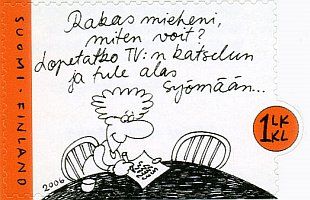 Rakas mieheni,
miten voit?
Lopetatko TV:n katselun
ja tule alas
syömään...
SUOMI - FINLAND
1 LK
KL
2006